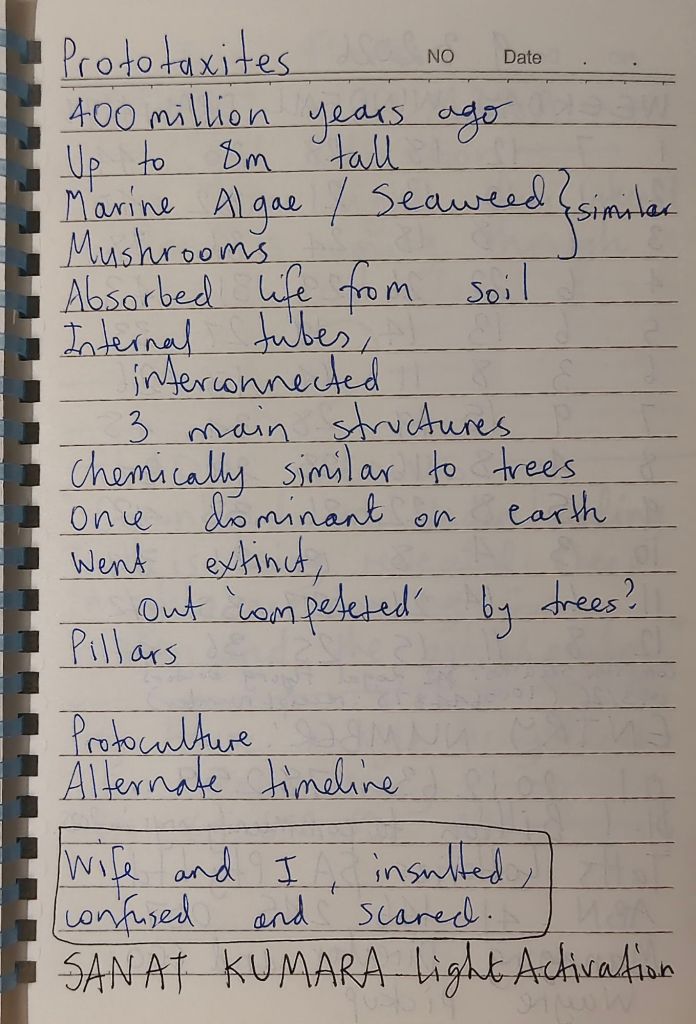 Prototaxites NO Date . .
400 million years ago
Up to 8m tall
Marine Algae / Seaweed } similar
Mushrooms
Absorbed life from soil
Internal tubes,
interconnected
3 main structures
Chemically similar to trees
Once dominant on earth
Went extinct,
out 'competeted' by trees?
Pillars
Protoculture
Alternate timeline
Wife and I, insulted,
confused and scared.
SANAT KUMARA Light Activation